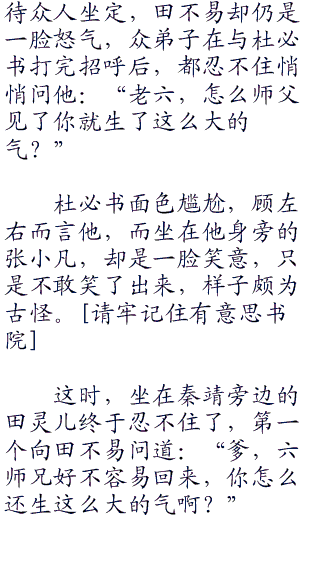 待众人坐定，田不易却仍是
一脸怒气，众弟子在与杜必
书打完招呼后，都忍不住悄
悄问他：“老六，怎么师父
见了你就生了这么大的
气？”
杜必书面色尴尬，顾左
右而言他，而坐在他身旁的
张小凡，却是一脸笑意，只
是不敢笑了出来，样子颇为
古怪。[请牢记住有意思书
院]
这时，坐在秦靖旁边的
田灵儿终于忍不住了，第一
个向田不易问道：“爹，六
师兄好不容易回来，你怎么
还生这么大的气啊？”